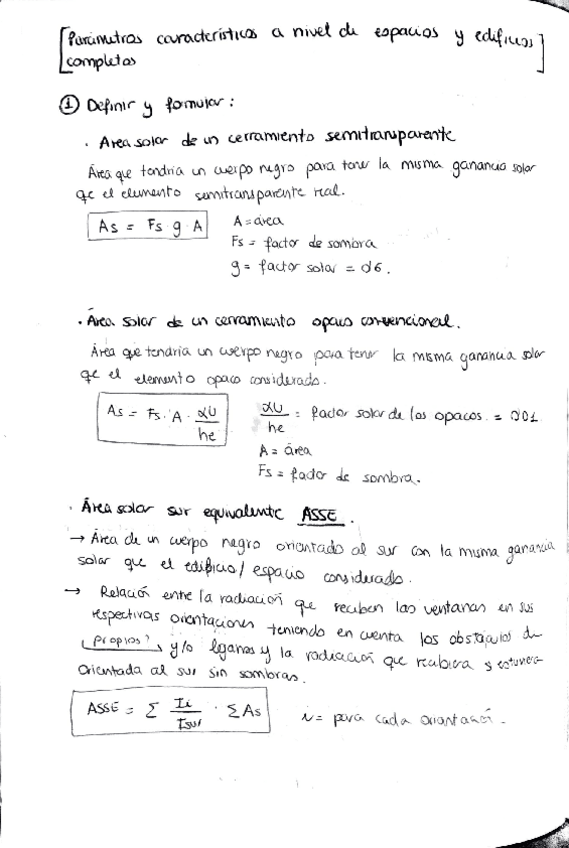 [Parámetros característicos a nivel de espacios y edificios
completos]
① Definir y formular:
· Area solar de un cerramiento semitransparente
Área que tendría un cuerpo negro para tener la misma ganancia solar
qe el elemento semitransparente real.
As = Fs g A
A = área
Fs = factor de sombra
g = factor solar = 0'6.
· Área solar de un cerramiento opaco convencional.
Área que tendría un cuerpo negro para tener la misma ganancia solar
qe el elemento opaco considerado.
As = Fs · A · αU/he
αU/he = factor solar de los opacos = 0'01
A = área
Fs = factor de sombra.
· Área solar sur equivalente ASSE.
→ Área de un cuerpo negro orientado al sur con la misma ganancia
solar que el edificio/espacio considerado.
→ Relación entre la radiación que reciben las ventanas en sus
respectivas orientaciones teniendo en cuenta los obstáculos
propios? y/o y la radiación que recibiera si estuviera
orientada al sur sin sombras.
ASSE = Σ Ii/Isur · Σ As
i = para cada orientación.